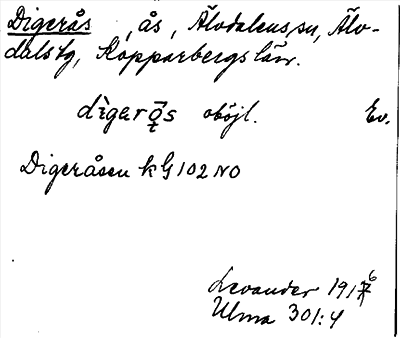 Digerås , ås, Älvdalens sn, Älv-
dals tg, Kopparbergs län.
dìgərǭs oböjl. Ev.
Digeråsen k G 102 NO
Levander 1916
Ulma 301:4